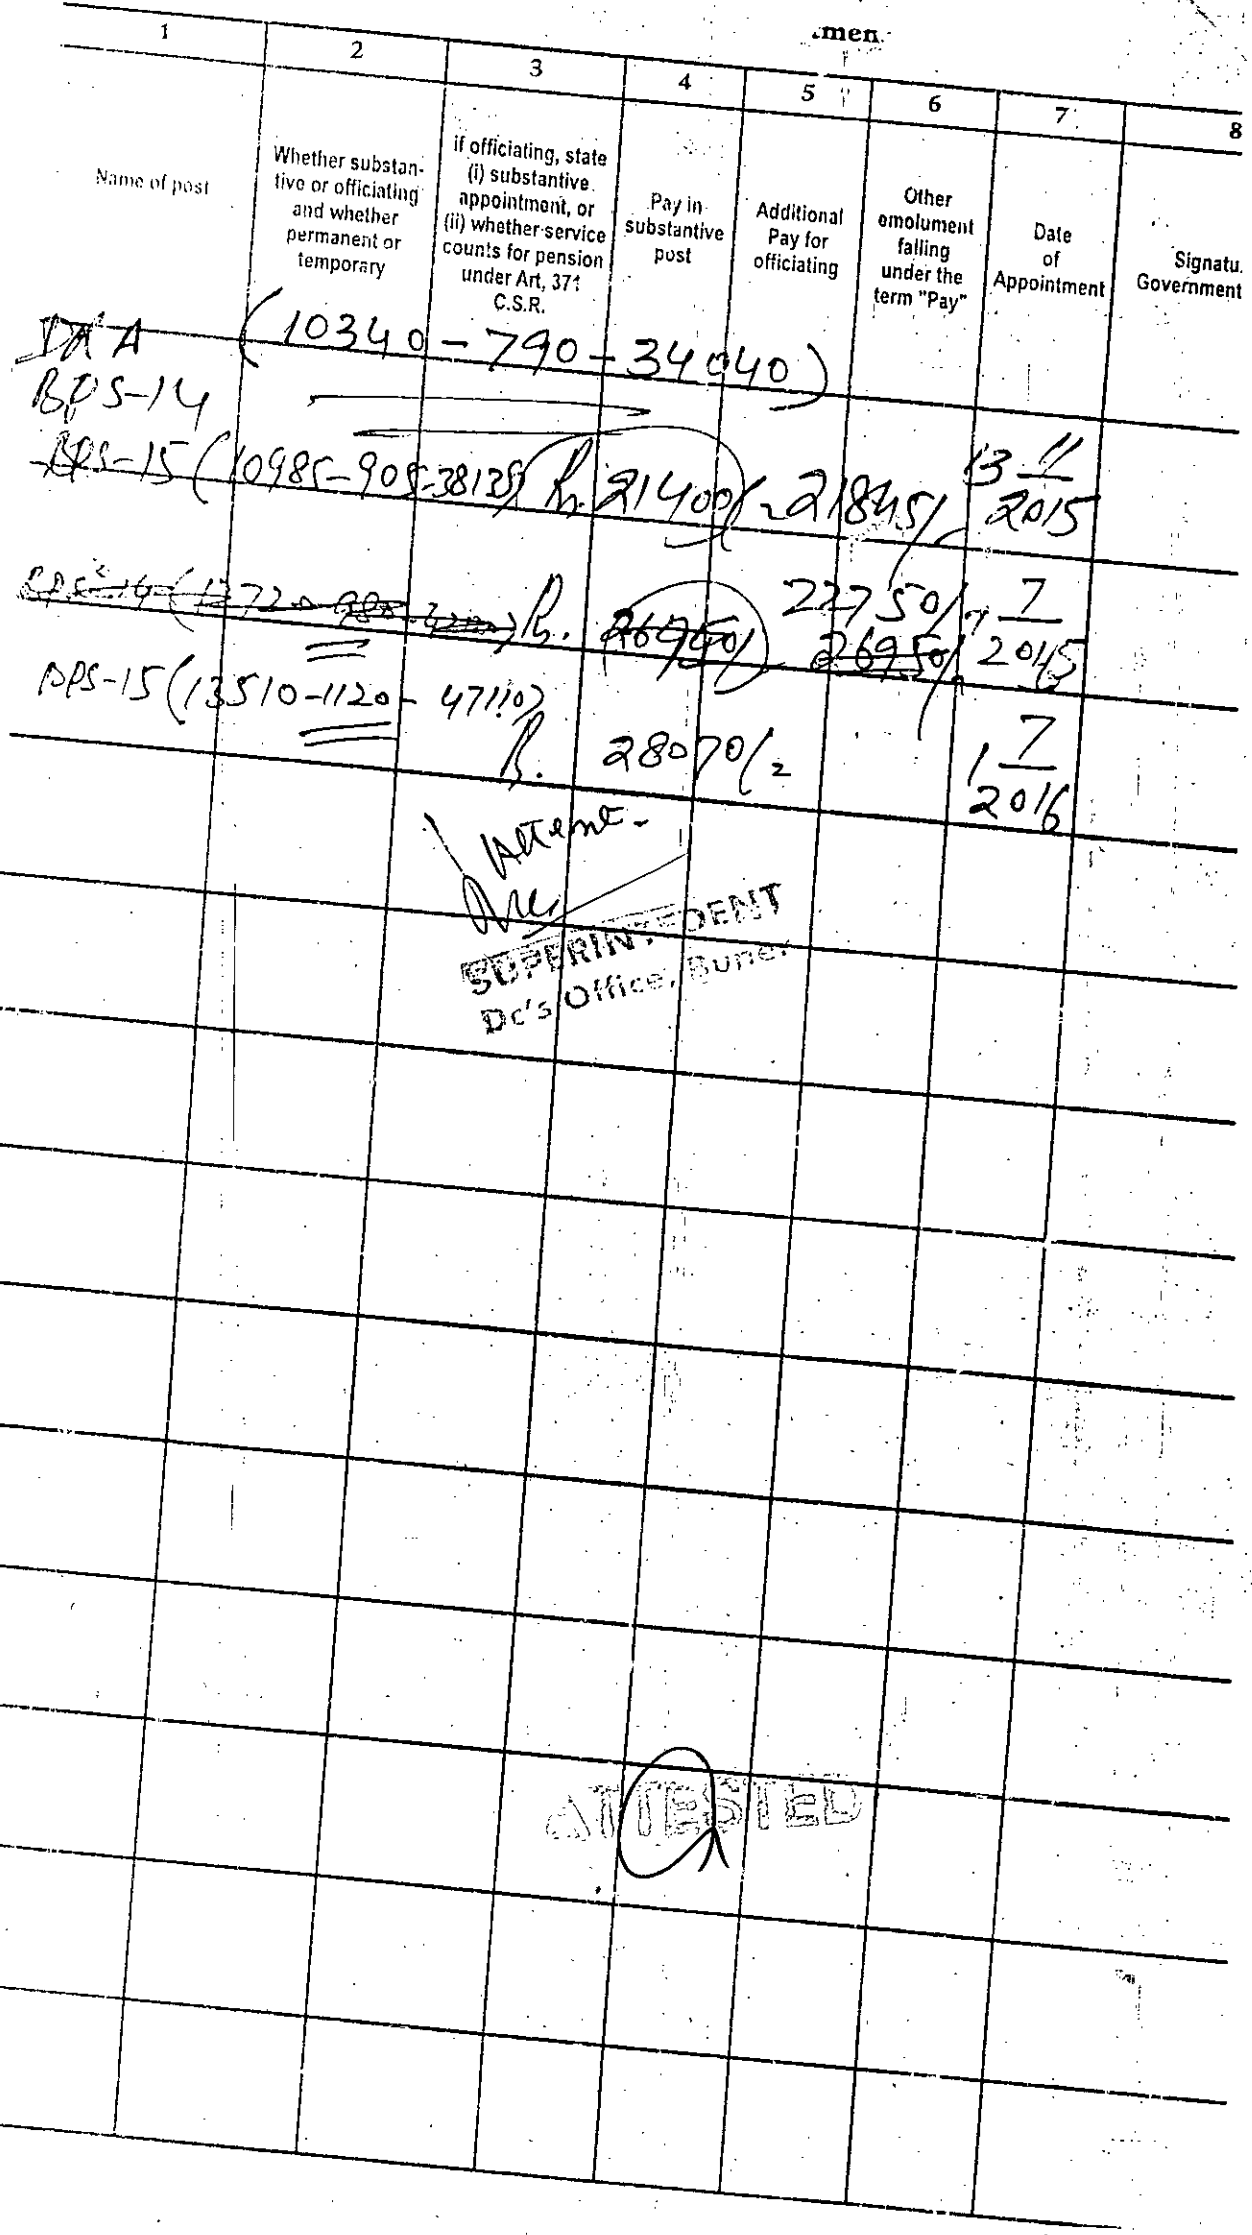 1 2 3 4 5 6 7 8
Name of post
Whether substan-
tive or officiating
and whether
permanent or
temporary
if officiating, state
(i) substantive
appointment, or
(ii) whether service
counts for pension
under Art, 371
C.S.R.
Pay in
substantive
post
Additional
Pay for
officiating
Other
emolument
falling
under the
term "Pay"
Date
of
Appointment
Signatu
Government
(10340-790-34040)
BPS-14
BPS-15 (10985-905-38135) Rs. 21400/- 21845/- 13 11 2015
22750/- 7 2015
Rs. 26950/- 26950/-
BPS-15 (13510-1120-47110)
Rs. 28070/- 1 7 2016
SUPERINTEDENT
Dc's Office, Buner
ATTESTED